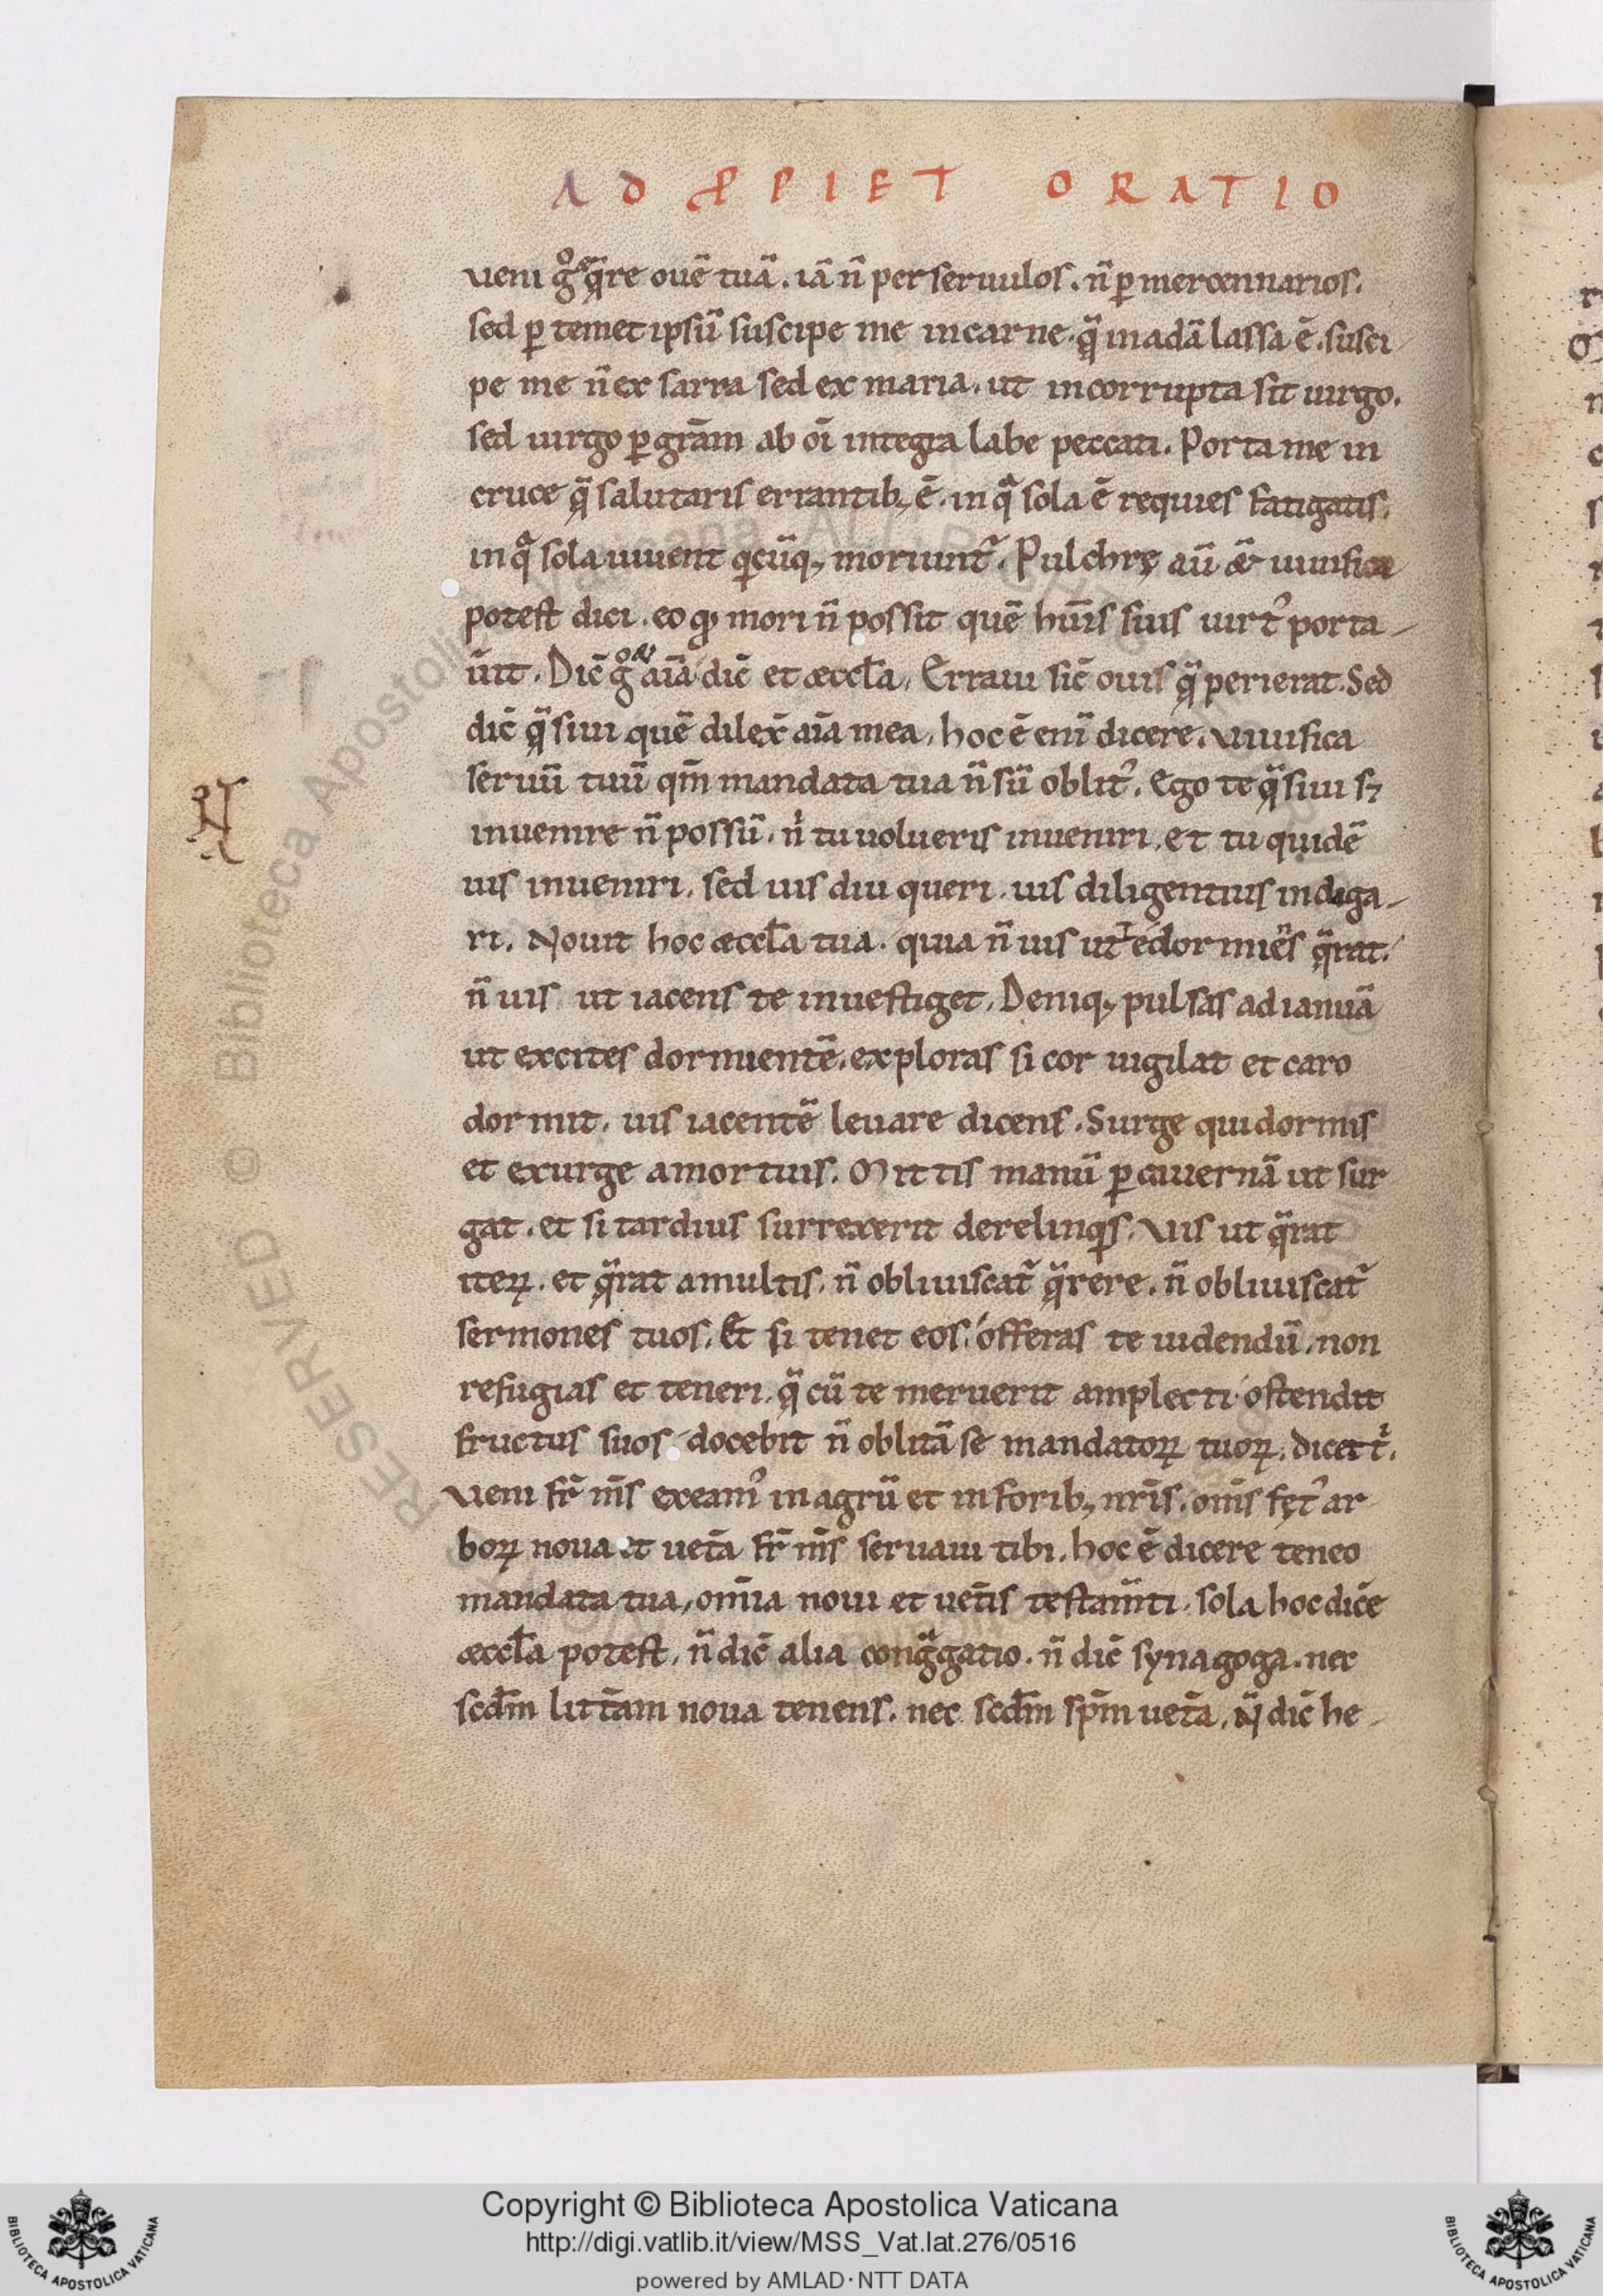 AD P̲PIET ORATIO
ueni gͦ q̄rere ouē tuā. iā n̄ per seruulos. n̄ ꝑ mercennarios.
sed ꝑ temet ipsū suscipe me in carne. q̄ in adā lassa ē. susci
pe me n̄ ex sarra sed ex maria. ut incorrupta sit uirgo.
sed uirgo ꝑ grām ab oī integra labe peccati. Porta me in
cruce q̄ salutaris errantib; ē. in qᵃ sola ē requies fatigatis.
in qᵃ sola uiuent qͥcūq; moriunt᷑. Pulchrę aū & uiuifica
potest dici. eo qđ mori n̄ possit quē hūīs suis uirt᾽ porta-
uit. Dic̄ gͦ aīa dic̄ et æccl̄a. Erraui sic̄ ouis q̄ perierat. Sed
dic̄ q̄siui quē dilex̄ aīa mea. hoc ē enī dicere. Viuifica
seruū tuū qm̄ mandata tua n̄ sū oblit᾽. Ego te q̄siui sꝫ
inuenire n̄ possū. nͥ tu uolueris inueniri. et tu quidē
uis inueniri. sed uis diu queri. uis diligentius indaga-
ri. Nouit hoc æccl̄a tua. quia n̄ uis ut te dormiēs q̄rat.
n̄ uis ut iacens te inuestiget. Deniq; pulsas ad ianuā
ut excites dormientē. exploras si cor uigilat et caro
dormit. uis iacentē leuare dicens. Surge qui dormis
et exurge a mortuis. Mittis manū ꝑ cauernā ut sur
gat. et si tardius surrexerit derelinqͥs. Vis ut q̄rat
iteꝝ. et q̄rat a multis. n̄ obliuiscat᷑ q̄rere. n̄ obliuiscat᷑
sermones tuos. Et si tenet eos. offeras te uidendū. non
refugias et teneri. q̄ cū te meruerit amplecti ostendit
fructus suos. docebit n̄ oblitā se mandatoꝝ tuoꝝ. dicet tͥ.
Veni fr̄ mīs exeam᾽ in agrū et in forib; nr̄is. om̄is fęt᾽ ar
boꝝ noua et uet̄a fr̄ mīs seruaui tibi. hoc ē dicere teneo
mandata tua, om̄ia noui et uet̄is testam̄ti. sola hoc dic̄e
æccl̄a potest. n̄ dic̄ alia congᵃgatio. n̄ dic̄ synagoga. nec
scdm̄ litt̄am noua tenens. nec scdm̄ spm̄ uet̄a. N̄ dic̄ he-
Copyright © Biblioteca Apostolica Vaticana
http://digi.vatlib.it/view/MSS_Vat.lat.276/0516
powered by AMLAD·NTT DATA
BIBLIOTECA APOSTOLICA VATICANA
BIBLIOTECA APOSTOLICA VATICANA